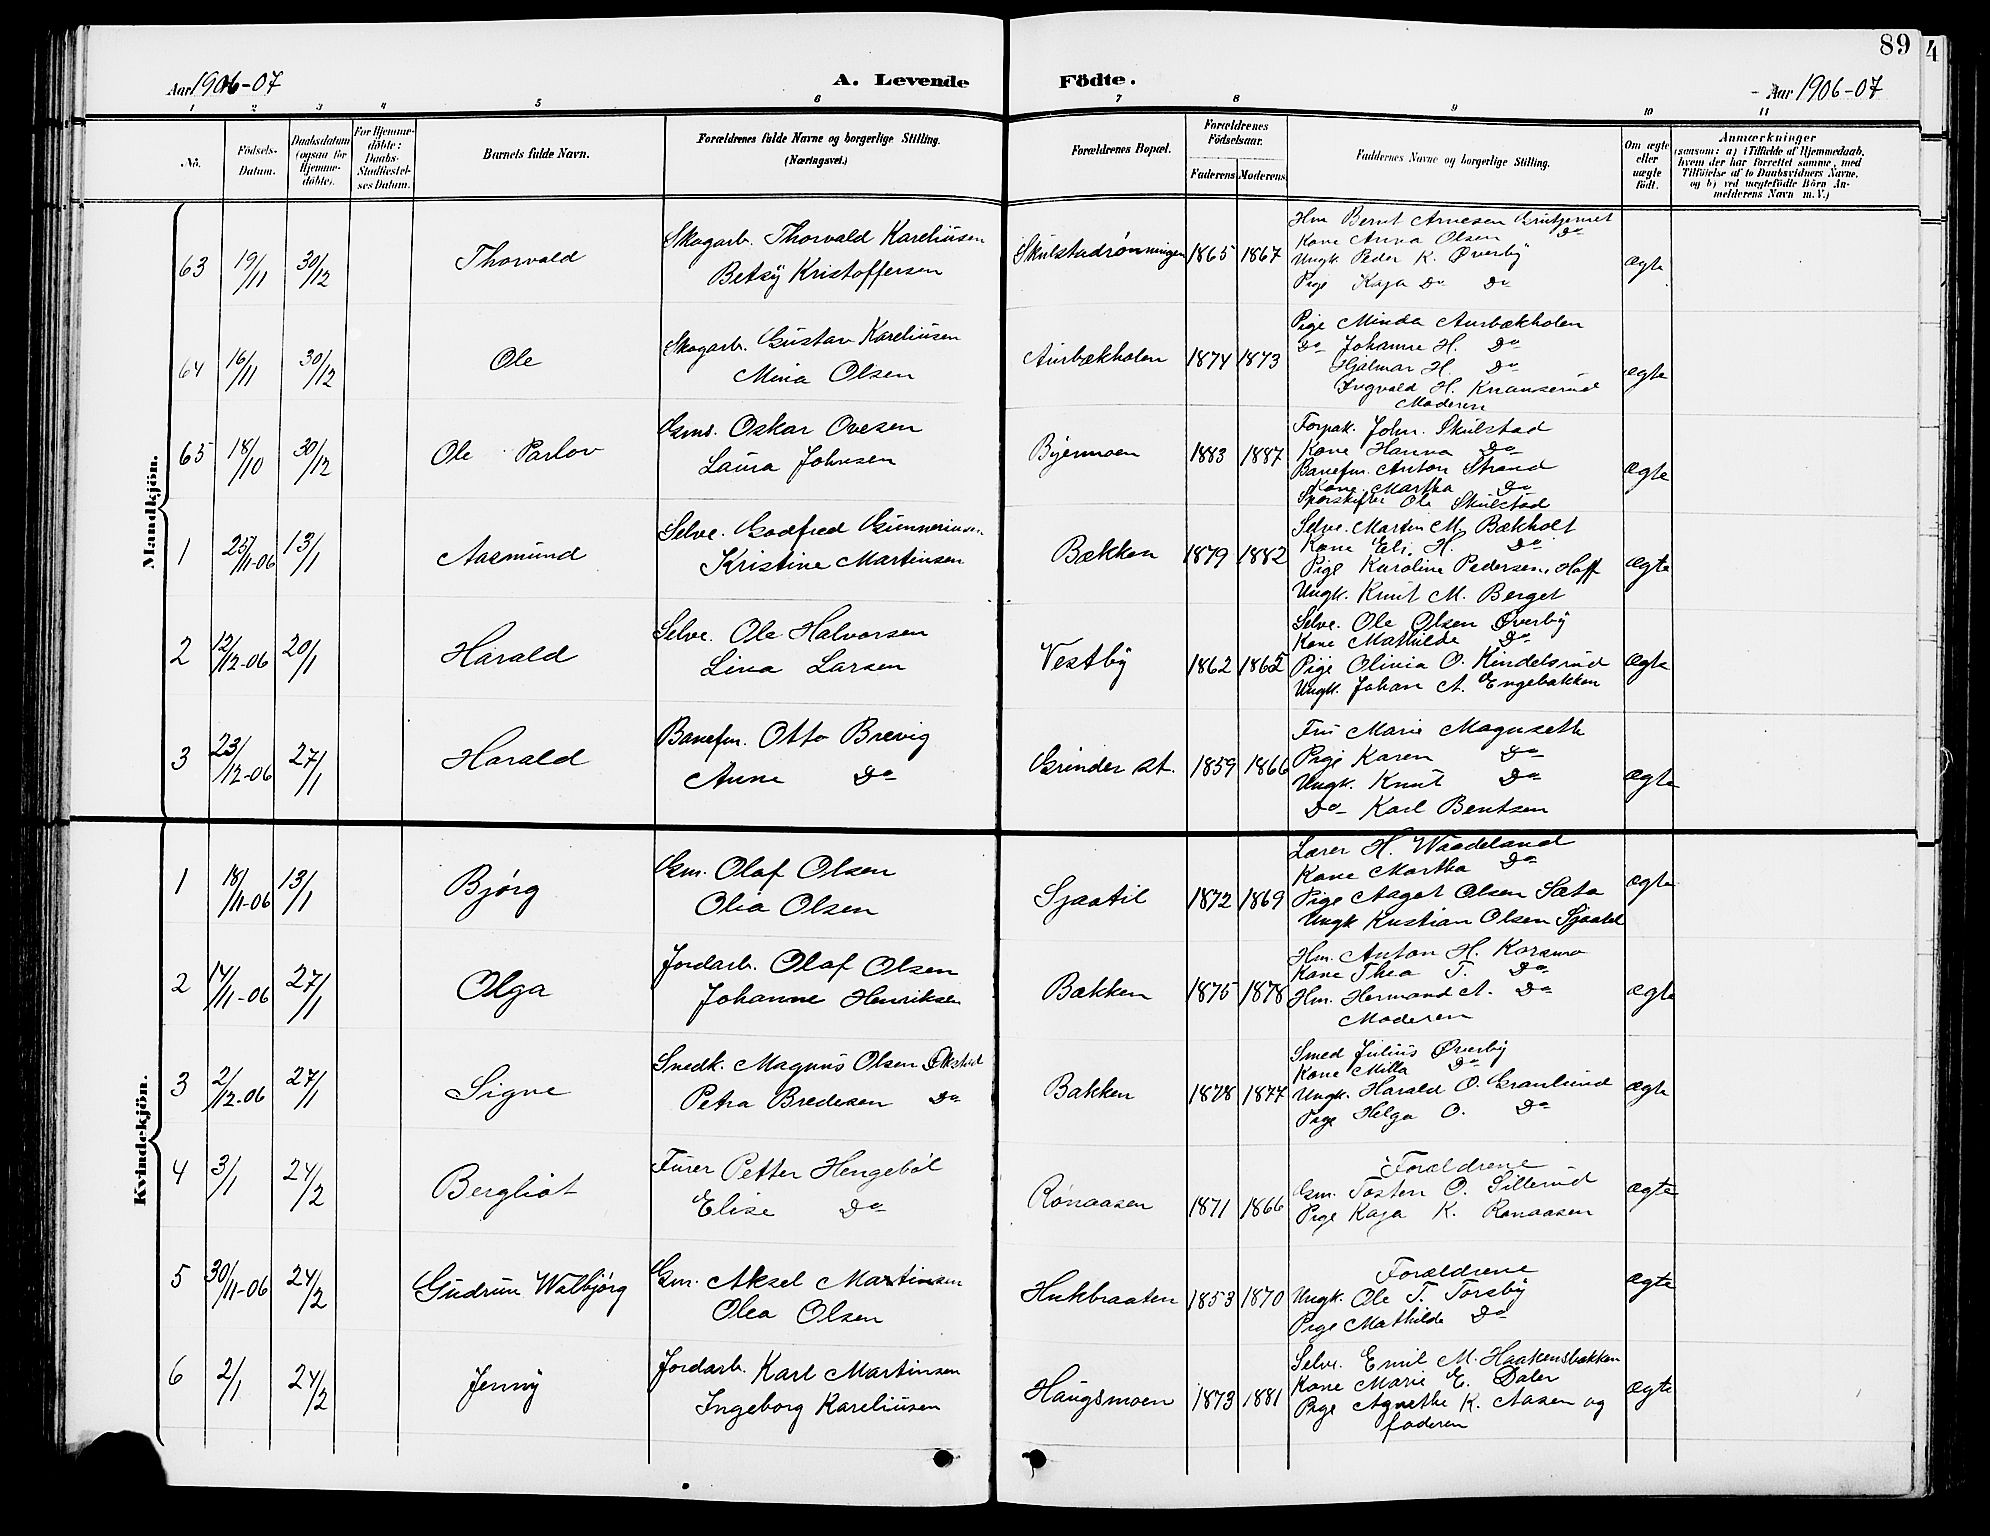 89
4
Aar 1906-07
A. Levende
Födte.
Aar 1906-07
1 2 3 4 5 6 7 8 9 10 11
No.
Födsels-Datum.
Daabsdatum (ogsaa for Hjemme-döbte).
For Hjemme-döbte: Daabs-Stadfæstel-ses Datum.
Barnets fulde Navn.
Forældrenes fulde Navne og borgerlige Stilling. (Næringsvei.)
Forældrenes Bopæl.
Forældrenes Födselsaar.
Faderens Moderens
Faddernes Navne og borgerlige Stilling.
Om ægte eller uægte födt.
Anmærkninger
(saasom: a) i Tilfælde af Hjemmedaab, hvem der har forrettet samme, med Tilföielse af to Daabsvidners Navne, og b) ved uægtefödte Börn An-melderens Navn m. V.)
Mandkjön.
63 19/11 30/12 Thorvald
Skogarb. Thorvald Kareliusen
Betsy Kristoffersen
Skulstadrønningen 1865 1867
Hm Bernt Arnesen
Kone Anna Olsen Do
Ungk. Peder K. Øverby
Pige Kaja Do Do
ægte
64 16/11 30/12 Ole
Skogarb. Gustav Kareliusen
Mina Olsen
Aurbækholen 1874 1873
Pige Minda Aurbækholen
Do Johanne H. Do
Hjalmar H. Do
Ingvald H. Knauserud
Moderen
ægte
65 18/10 30/12 Ole Parlov
Gmd. Oskar Ovesen
Laura Johnsen
Byermoen 1883 1887
Forpak. John. Skulstad
Kone Hanna Do
Banefm. Anton Strand
Kone Martha Do
Sporskifter Ole Skulstad
ægte
1 25/11-06 13/1 Aasmund
Selve. Godfred Gunneriusen
Kristine Martinsen
Bækken 1879 1882
Selve. Martin M. Bækholt
Kone Eli H. Do
Pige Karoline Pedersen, Hoff
Ungk. Knut M. Berget
ægte
2 12/12-06 20/1 Harald
Selve. Ole Halvorsen
Lina Larsen
Vestby 1862 1865
Selve. Ole Olsen Øverby
Kone Mathilde Do
Pige Olivia O. Kindelsrud
Ungk. Johan A. Engebakken
ægte
3 23/12-06 27/1 Harald
Banefm. Otto Brevig
Anne Do
Grinder st. 1859 1866
Fru Marie Magnseth
Pige Karen Do
Ungk. Knut Do
Do Karl Bentsen
ægte
Kvindekjön.
1 18/11-06 13/1 Bjørg
Gm. Olaf Olsen
Olea Olsen
Sjaatil 1872 1869
Lærer H. Waadeland
Kone Martha Do
Pige Aaget Olsen Sæta
Ungk Kristian Olsen Sjaatil
ægte
2 14/11-06 27/1 Olga
Jordarb. Olaf Olsen
Johanne Henriksen
Bakken 1875 1878
Hm. Anton H. Korsmo
Kone Thea T. Do
Hm. Hermand A. Do
Moderen
ægte
3 2/12-06 27/1 Signe
Snedk. Magnus Olsen Økstad
Petra Bredesen Do
Bakken 1878 1877
Smed Julius Øverby
Kone Milla Do
Ungk. Harald O. Granlund
Pige Helga O. Do
ægte
4 3/1 24/2 Bergliot
Furer Petter Hengebøl
Elise Do
Rønaasen 1871 1866
Forældrene
Gm. Tosten O. Sillerud
Pige Kaja K. Rønaasen
ægte
5 30/11-06 24/2 Gudrun Walbjørg
Gm. Aksel Martinsen
Olea Olsen
Hukbraaten 1853 1870
Forældrene
Ungk. Ole T. Torsby
Pige Mathilde Do
ægte
6 2/1 24/2 Jenny
Jordarb. Karl Martinsen
Ingeborg Kareliusen
Haugsmoen 1873 1881
Selve. Emil M. Haakensbækken
Kone Marie E. Daler
Pige Agnethe K. Aasen og
faderen
ægte